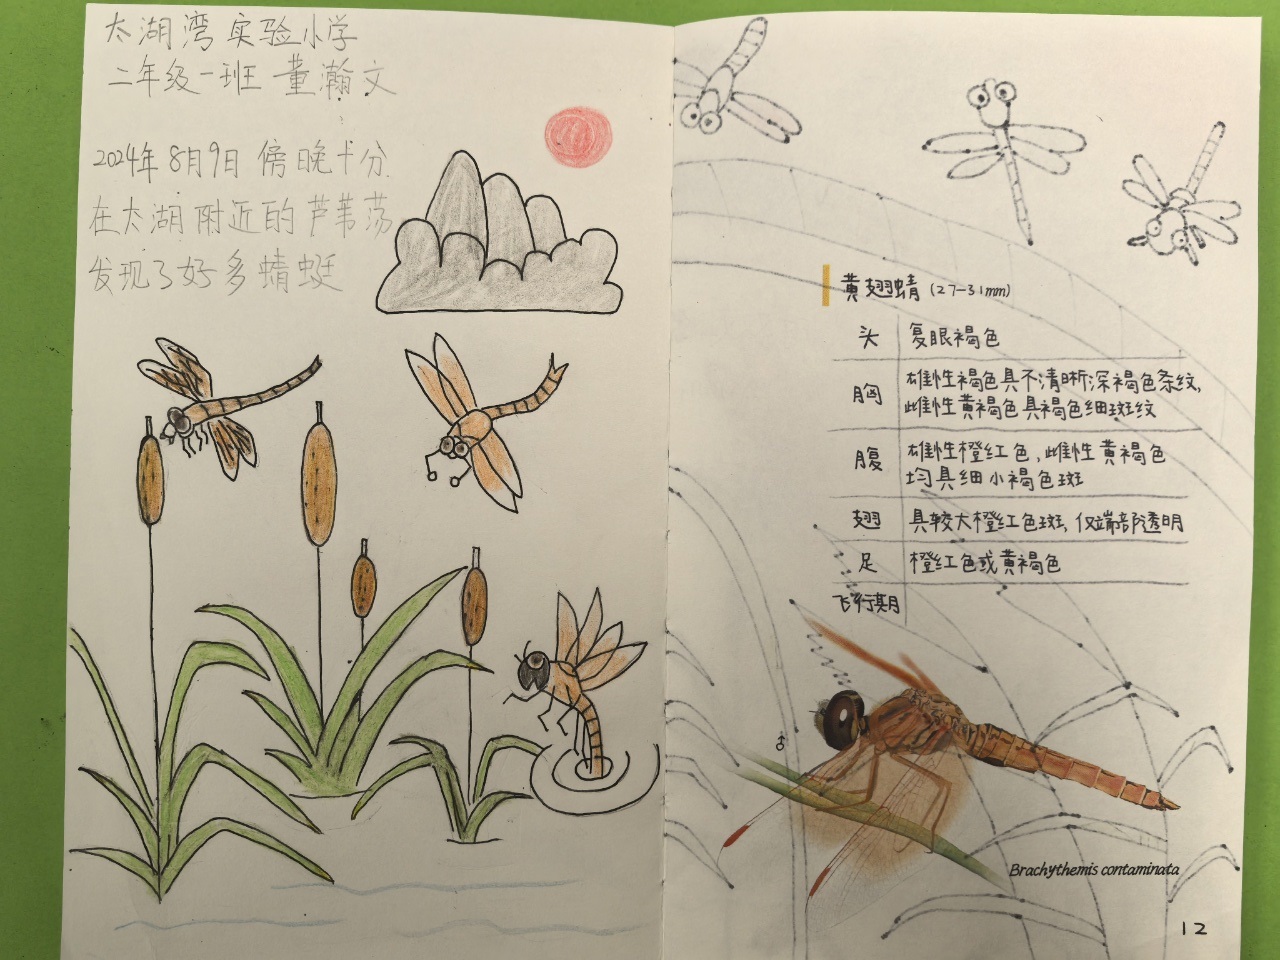 太湖湾实验小学
二年级一班 董瀚文
2024年8月9日 傍晚十分
在太湖附近的芦苇荡
发现了好多蜻蜓
黄翅蜻 (27-31mm)
头 复眼褐色
胸 雄性褐色具不清晰深褐色条纹,
雌性黄褐色具褐色细斑纹
腹 雄性橙红色,雌性黄褐色
均具细小褐色斑
翅 具较大橙红色斑,仅端部透明
足 橙红色或黄褐色
飞行期
♂
Brachythemis contaminata
12